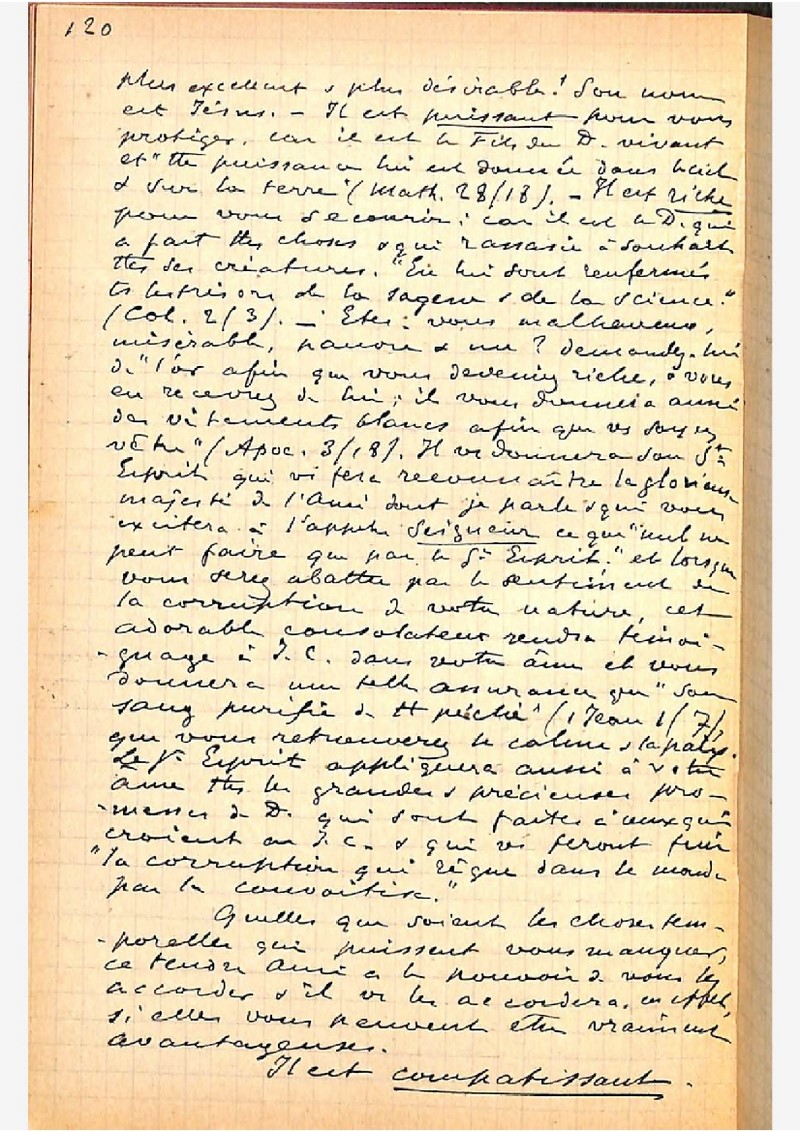 120
plus excellent & plus désirable ! Son nom
est Jésus. – Il est puissant pour vous
protéger, car il est le Fils du D. vivant
et "tte puissance lui est donnée dans le ciel
& sur la terre" (Math. 28/18). – Il est riche
pour vous secourir ; car il est le D. qui
a fait ttes choses & qui rassasie à souhait
ttes ses créatures. "En lui sont renfermés
ts les trésors de la sagesse & de la science."
(Col. 2/3). – Etes-vous malheureux,
misérable, pauvre & nu ? demandez-lui
de "l'or afin que vous deveniez riche, & vous
en recevrez de lui ; il vous donnera aussi
des vêtements blancs afin que vs soyez
vêtu" (Apoc. 3/18). Il vs donnera son St
Esprit qui vs fera reconnaître la glorieuse
majesté de l'Ami dont je parle & qui vous
excitera à l'appeler Seigneur ce que "nul ne
peut faire que par le St Esprit." et lorsque
vous serez abattu par le sentiment de
la corruption de votre nature, cet
adorable consolateur rendra témoi-
-gnage à J. C. dans votre âme et vous
donnera une telle assurance que "son
sang purifie de tt péché" (1 Jean 1/7),
que vous retrouverez le calme & la paix.
Le St Esprit appliquera aussi à votre
âme ttes les grandes & précieuses pro-
-messes de D. qui sont faites à ceux qui
croient en J. C. & qui vs feront fuir
"la corruption qui règne dans le monde
par la convoitise."
Quelles que soient les choses tem-
-porelles qui puissent vous manquer,
ce tendre Ami a le pouvoir de vous les
accorder & il vs les accordera, en effet,
si elles vous peuvent être vraiment
avantageuses.
Il est compatissant.